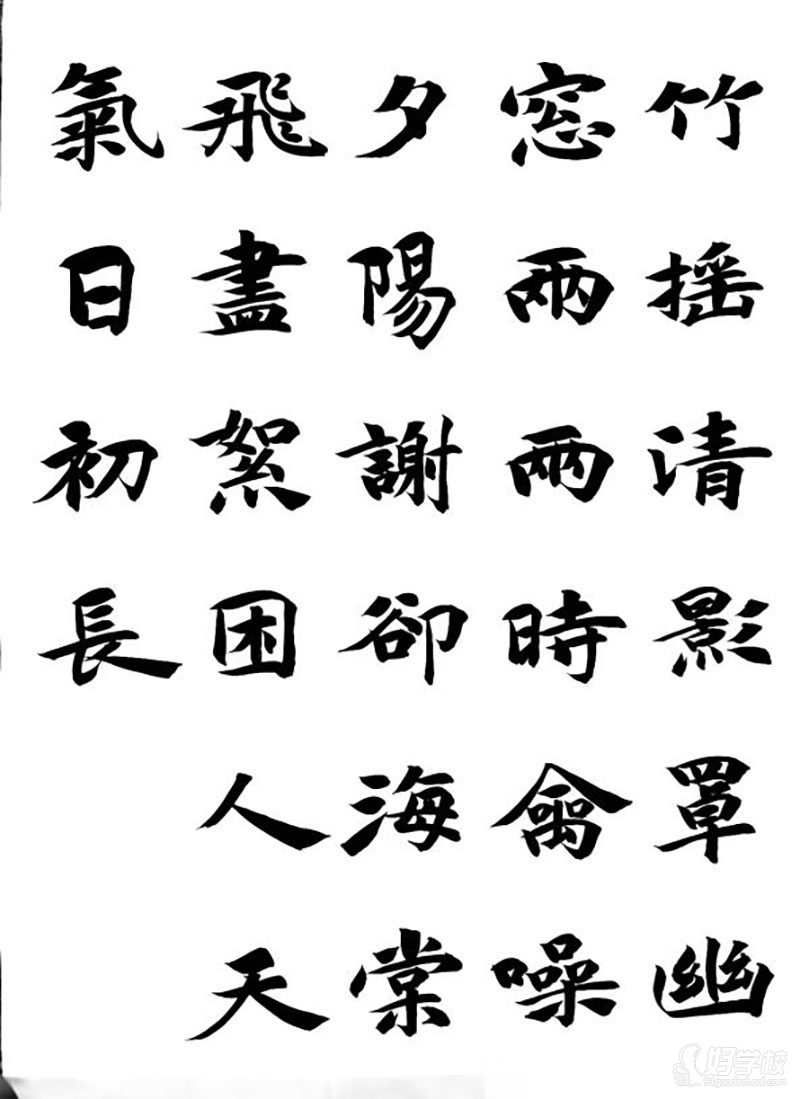 竹摇清影罩幽
窓兩兩時禽噪
夕陽謝卻海棠
飛盡絮困人天
氣日初長
好学校
91goodschool.com